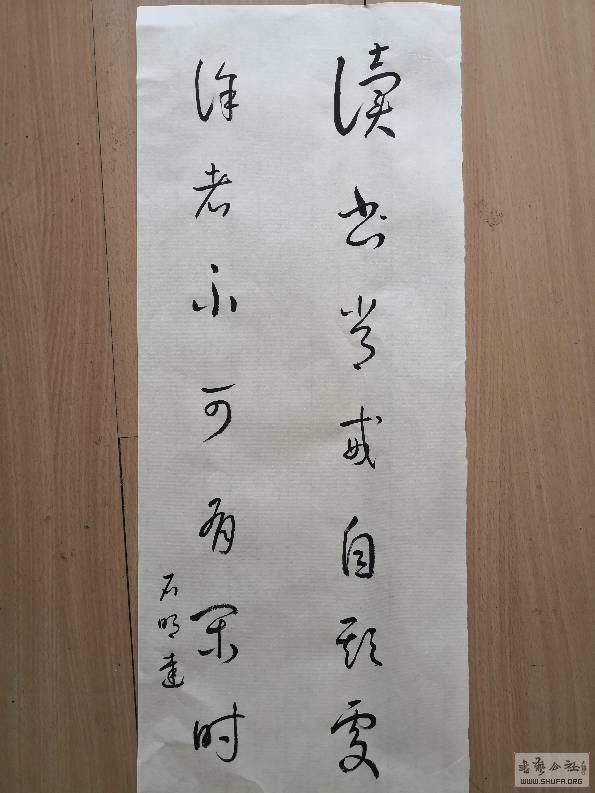 读书常戒自欺处
老不可有闲时
石明達
书艺公社
WWW.SHUFA.ORG